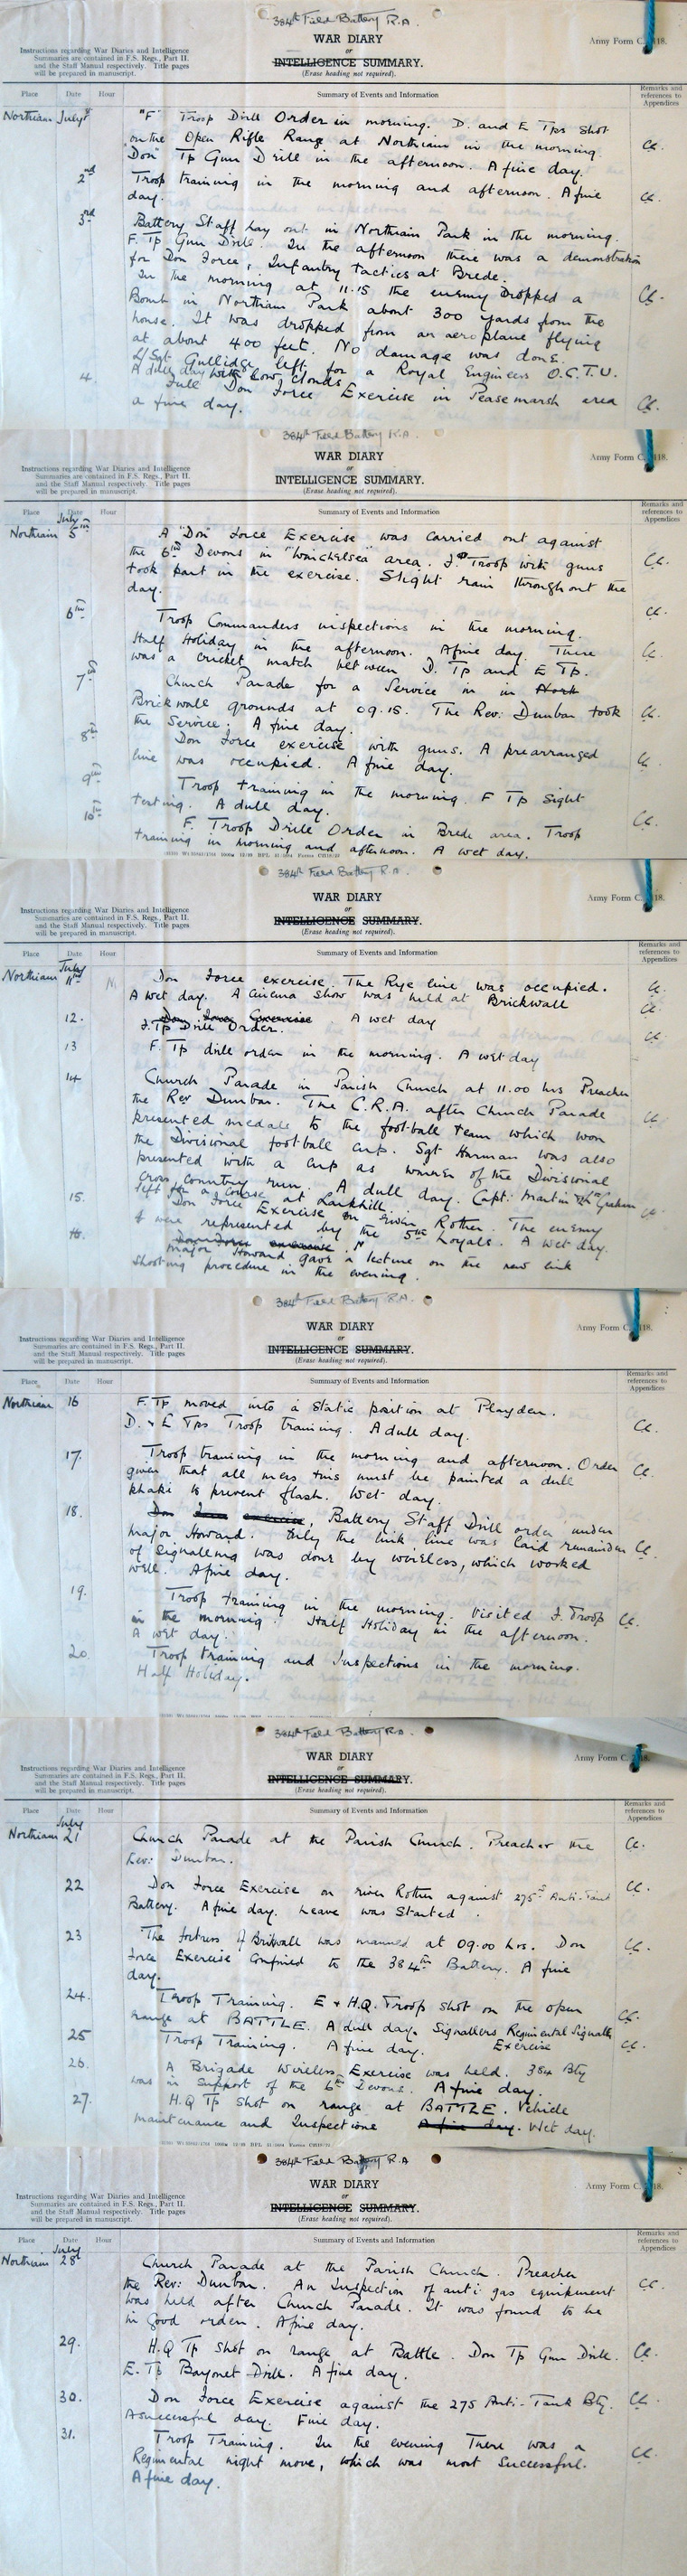 384th Field Battery R.A.
WAR DIARY
or
INTELLIGENCE SUMMARY.
(Erase heading not required).
Army Form C. 118.
Instructions regarding War Diaries and Intelligence
Summaries are contained in F.S. Regs., Part II.
and the Staff Manual respectively. Title pages
will be prepared in manuscript.
Place Date Hour Summary of Events and Information Remarks and references to Appendices
Northiam July "F" Troop Drill Order in morning. D. and E Tps Shot
on the Open Rifle Range at Northiam in the morning.
Don Tp Gun Drill in the afternoon. A fine day.
2nd Troop training in the morning and afternoon. A fine
day.
3rd Battery Staff lay out in Northiam Park in the morning.
F. Tp Gun Drill. In the afternoon there was a demonstration
for Don Force, Infantry tactics at Brede.
In the morning at 11.15 the enemy Dropped a
Bomb in Northiam Park about 300 yards from the
house. It was dropped from an aeroplane flying
at about 400 feet. No damage was done.
L/Sgt Gullidge left for a Royal Engineers O.C.T.U.
A dull day with low clouds.
4. Full Don Force Exercise in Peasemarsh area
a fine day.
384th Field Battery R.A.
WAR DIARY
or
INTELLIGENCE SUMMARY.
(Erase heading not required).
Army Form C. 118.
Instructions regarding War Diaries and Intelligence
Summaries are contained in F.S. Regs., Part II.
and the Staff Manual respectively. Title pages
will be prepared in manuscript.
Place Date Hour Summary of Events and Information Remarks and references to Appendices
July
Northiam 5th A "Don" Force Exercise was carried out against
the 6th Devons in "Winchelsea" area. Troop with guns
took part in the exercise. Slight rain throughout the
day.
6th Troop Commanders inspections in the morning.
Half Holiday in the afternoon. A fine day. There
was a cricket match between D. Tp and E Tp.
7th Church Parade for a Service in in
Brickwall grounds at 09.15. The Rev: Dunbar took
the Service. A fine day.
8th Don Force exercise with guns. A prearranged
line was occupied. A fine day.
9th Troop training in the morning. F Tp Sight
testing. A dull day.
10th F. Troop Drill Order in Brede area. Troop
training in morning and afternoon. A wet day.
384th Field Battery R.A.
WAR DIARY
or
INTELLIGENCE SUMMARY.
(Erase heading not required).
Army Form C. 118.
Instructions regarding War Diaries and Intelligence
Summaries are contained in F.S. Regs., Part II.
and the Staff Manual respectively. Title pages
will be prepared in manuscript.
Place Date Hour Summary of Events and Information Remarks and references to Appendices
July
Northiam 11th Don Force exercise. The Rye line was occupied.
A wet day. A cinema show was held at Brickwall
12. Don Force Exercise A wet day
F. Tp Drill Order.
13 F. Tp drill order in the morning. A wet day
14 Church Parade in Parish Church at 11.00 hrs Preacher
the Rev Dunbar. The C.R.A. after Church Parade
presented medals to the football team which won
the Divisional football cup. Sgt Harman was also
presented with a cup as winner of the Divisional
cross country run. A dull day. Capt. Martin Graham
left for a course at Larkhill.
15. Don Force Exercise on River Rother. The enemy
were represented by the 5th Loyals. A wet day.
16. Don Force exercise.
Major Howard gave a lecture on the new link
shooting procedure in the evening.
384th Field Battery R.A.
WAR DIARY
or
INTELLIGENCE SUMMARY.
(Erase heading not required).
Army Form C. 118.
Instructions regarding War Diaries and Intelligence
Summaries are contained in F.S. Regs., Part II.
and the Staff Manual respectively. Title pages
will be prepared in manuscript.
Place Date Hour Summary of Events and Information Remarks and references to Appendices
Northiam 16 F. Tp moved into a static position at Playden.
D. & E Tps Troop training. A dull day.
17. Troop training in the morning and afternoon. Order
given that all mess tins must be painted a dull
khaki to prevent flash. Wet day.
18. Don Force exercise, Battery Staff Drill order under
Major Howard. Only the link line was laid remainder
of signalling was done by wireless, which worked
well. A fine day.
19. Troop training in the morning. Visited F. Troop
in the morning. Half Holiday in the afternoon.
A wet day.
20. Troop training and Inspections in the morning.
Half Holiday.
384th Field Battery R.A.
WAR DIARY
or
INTELLIGENCE SUMMARY.
(Erase heading not required).
Army Form C. 118.
Instructions regarding War Diaries and Intelligence
Summaries are contained in F.S. Regs., Part II.
and the Staff Manual respectively. Title pages
will be prepared in manuscript.
Place Date Hour Summary of Events and Information Remarks and references to Appendices
July
Northiam 21 Church Parade at the Parish Church. Preacher the
Rev: Dunbar.
22 Don Force Exercise on river Rother against 275th Anti-Tank
Battery. A fine day. Leave was Started.
23 The fortress of Brickwall was manned at 09.00 hrs. Don
Force Exercise Confined to the 384th Battery. A fine
day.
24. Troop Training. E & H.Q. Troop shot on the open
range at BATTLE. A dull day. Signallers Regimental Signals
Exercise
25 Troop Training. A fine day.
26. A Brigade Wireless Exercise was held. 384 Bty
was in support of the 6th Devons. A fine day.
27. H.Q Tp Shot on range at BATTLE. Vehicle
maintenance and Inspections A fine day. Wet day.
384th Field Battery R.A
WAR DIARY
or
INTELLIGENCE SUMMARY.
(Erase heading not required).
Army Form C. 118.
Instructions regarding War Diaries and Intelligence
Summaries are contained in F.S. Regs., Part II.
and the Staff Manual respectively. Title pages
will be prepared in manuscript.
Place Date Hour Summary of Events and Information Remarks and references to Appendices
July
Northiam 28 Church Parade at the Parish Church. Preacher
the Rev: Dunbar. An Inspection of anti gas equipment
was held after Church Parade. It was found to be
in good order. A fine day.
29. H.Q Tp Shot on range at Battle. Don Tp Gun Drill.
E. Tp Bayonet Drill. A fine day.
30. Don Force Exercise against the 275 Anti-Tank Bty.
A successful day. Fine day.
31. Troop Training. In the evening There was a
Regimental night move, which was most successful.
A fine day.